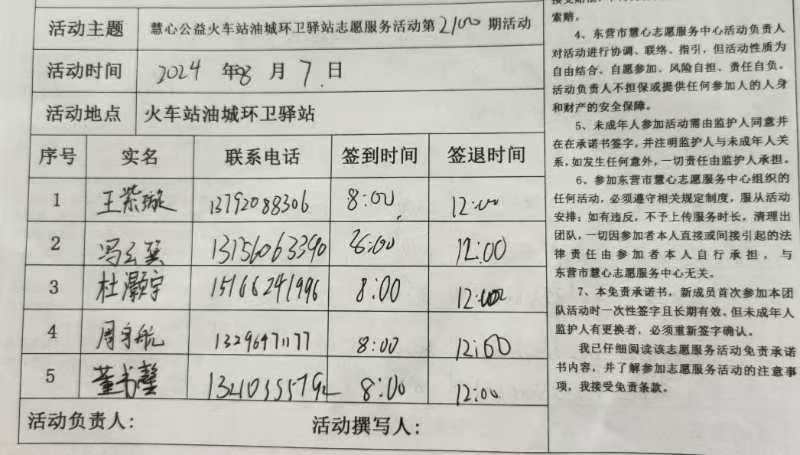 活动主题 慧心公益火车站油城环卫驿站志愿服务活动第2100期活动
活动时间 2024年8月7日
活动地点 火车站油城环卫驿站
序号 实名 联系电话 签到时间 签退时间
1 王紫璇 13792088306 8:00 12:00
2 冯云 13156063390 8:00 12:00
3 杜灏宇 15166241996 8:00 12:00
4 周宇航 13296471177 8:00 12:00
5 董书馨 8:00 12:00
活动负责人: 活动撰写人:
索赔。
4、东营市慧心志愿服务中心活动负责人
对活动进行协调、联络、指引,但活动性质为
自由结合、自愿参加、风险自担、责任自负。
活动负责人不担保或提供任何参加人的人身
和财产的安全保障。
5、未成年人参加活动需由监护人同意并
在在承诺书签字,并注明监护人与未成年人关
系,如发生任何意外,一切责任由监护人承担。
6、参加东营市慧心志愿服务中心组织的
任何活动,必须遵守相关规定制度,服从活动
安排;如有违反,不予上传服务时长,清理出
团队,一切因参加者本人直接或间接引起的法
律责任由参加者本人自行承担,与
东营市慧心志愿服务中心无关。
7、本免责承诺书,新成员首次参加本团
队活动时一次性签字且长期有效,但未成年人
监护人有更换者,必须重新签字确认。
我已仔细阅读该志愿服务活动免责承诺
书内容,并了解参加志愿服务活动的注意事
项,我接受免责条款。